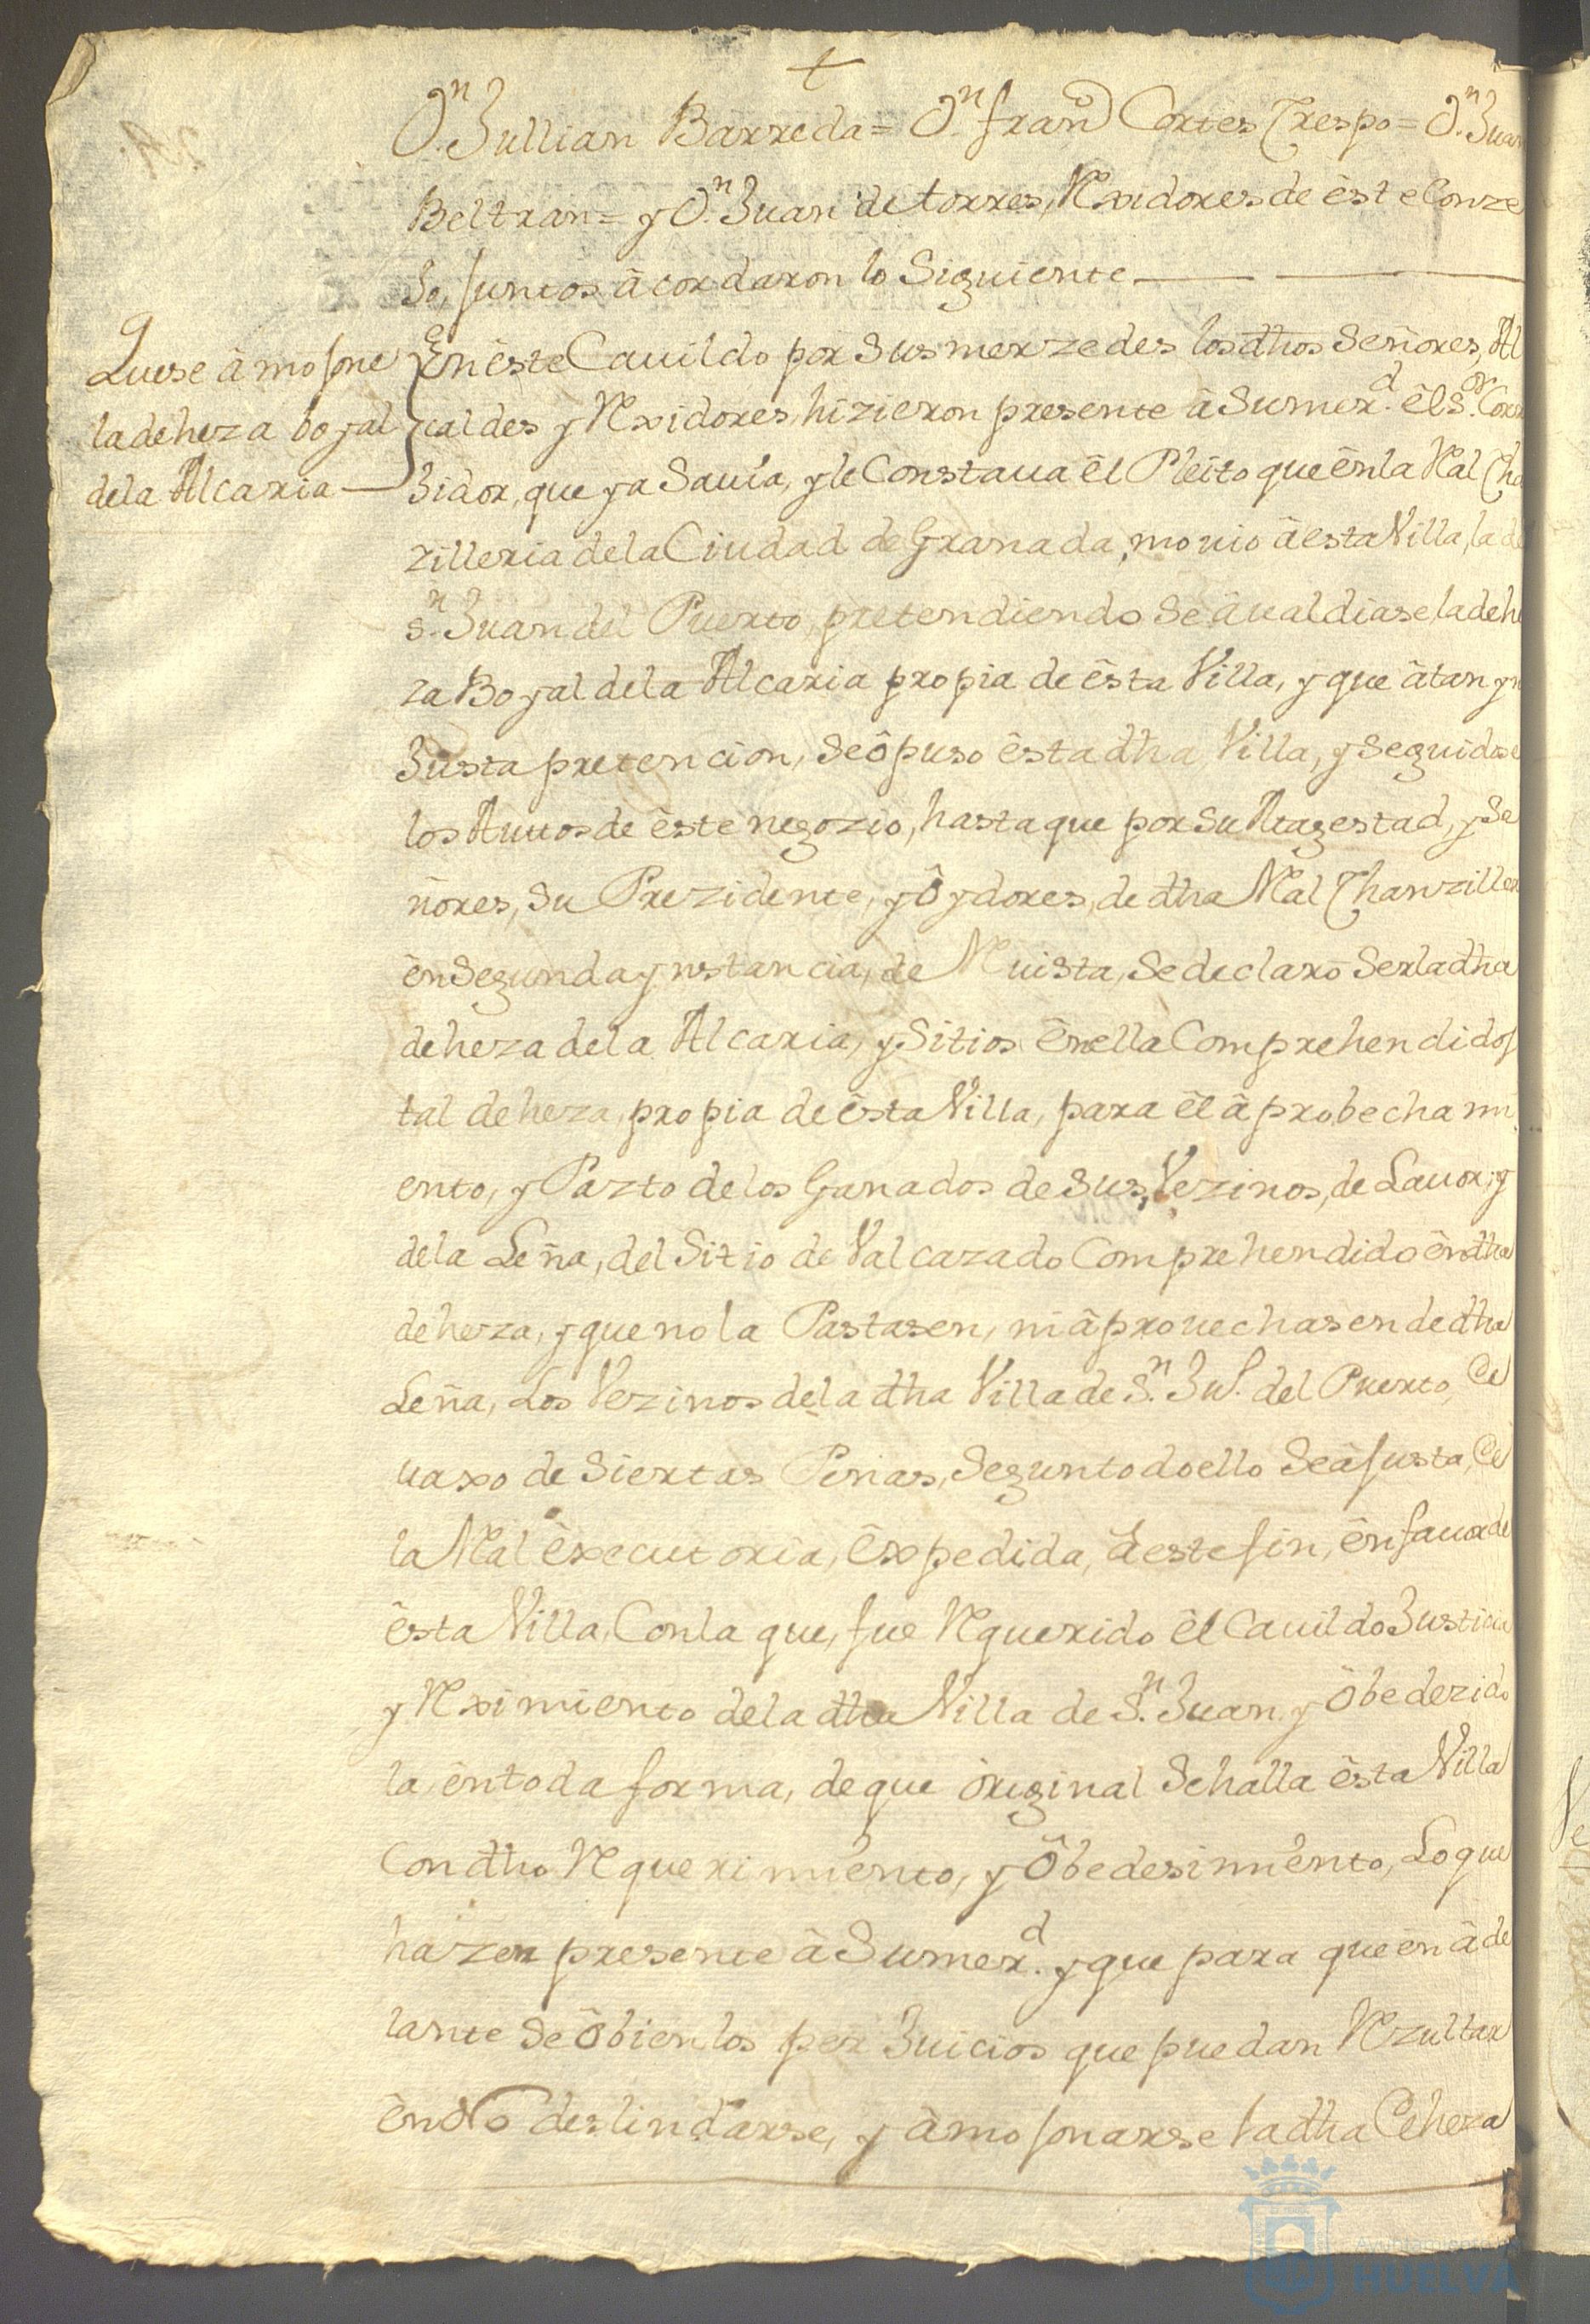 +
Dn. Jullian Barreda = Dn. franco Cortes Crespo = Dn. Juan
Beltran = y Dn. Juan de torres, Rexidores de êste Conze
Jo, juntos âcordaron lo Siguiente
Que se âmojone
la deheza boyal
de la Alcaria
En êste Cavildo por Sus merzedes los dhos Señores, Al
caldes y Rexidores, hizieron presente â Sumerd. êl Sor. Corre
Jidor, que ya Savia, y le Constava êl Pleito que ên la Ral Chan
zilleria de la Ciudad de Granada, movio â esta Villa, la de
Sn. Juan del Puerto, pretendiendo Se âvaldiase la dehe
za Boyal de la Alcaria propia de êsta Villa, y que â tan yn
Justa pretencion, Se ôpuso êsta dha Villa, y Seguidose
los Autos de êste negozio, hasta que por Su Magestad, y Se
ñores, Su Prezidente, y Ôydores, de dha Ral Chanzilleria
ên Segunda ynstancia, de Revista, Se declarô Ser la dha
deheza de la Alcaria, y Sitios ên ella Comprehendidos
tal deheza, propia de êsta Villa, para êl âprobechami
ento, y Pazto de los Ganados de Sus Vezinos, de Lavor, y
de la Leña, del Sitio de Valcazado Comprehendido ên dha
deheza, y que no la Pastasen, ni âprovechasen de dha
Leña, Los Vezinos de la dha Villa de Sn. Ju. del Puerto, De
vaxo de Siertas Penas, Segun todo ello Se âjusta, De
la Ral êxecutoria, êxpedida, â este fin, ên favor de
êsta Villa, Con la que, fue Requerido êl Cavildo Justicia
y Reximiento de la dha Villa de Sn. Juan y Ôbedezido
la, ên toda forma, de que ôriginal Se halla êsta Villa
Con dho Requerimiento, y Ôbedesimiento, Lo que
hazen presente â Sumerd. y que para que ên âde
lante Se ôbien los perJuicios que puedan Rezultar
ên No deslindarse, y âmojonarse la dha Deheza
Ayuntamiento de
HUELVA